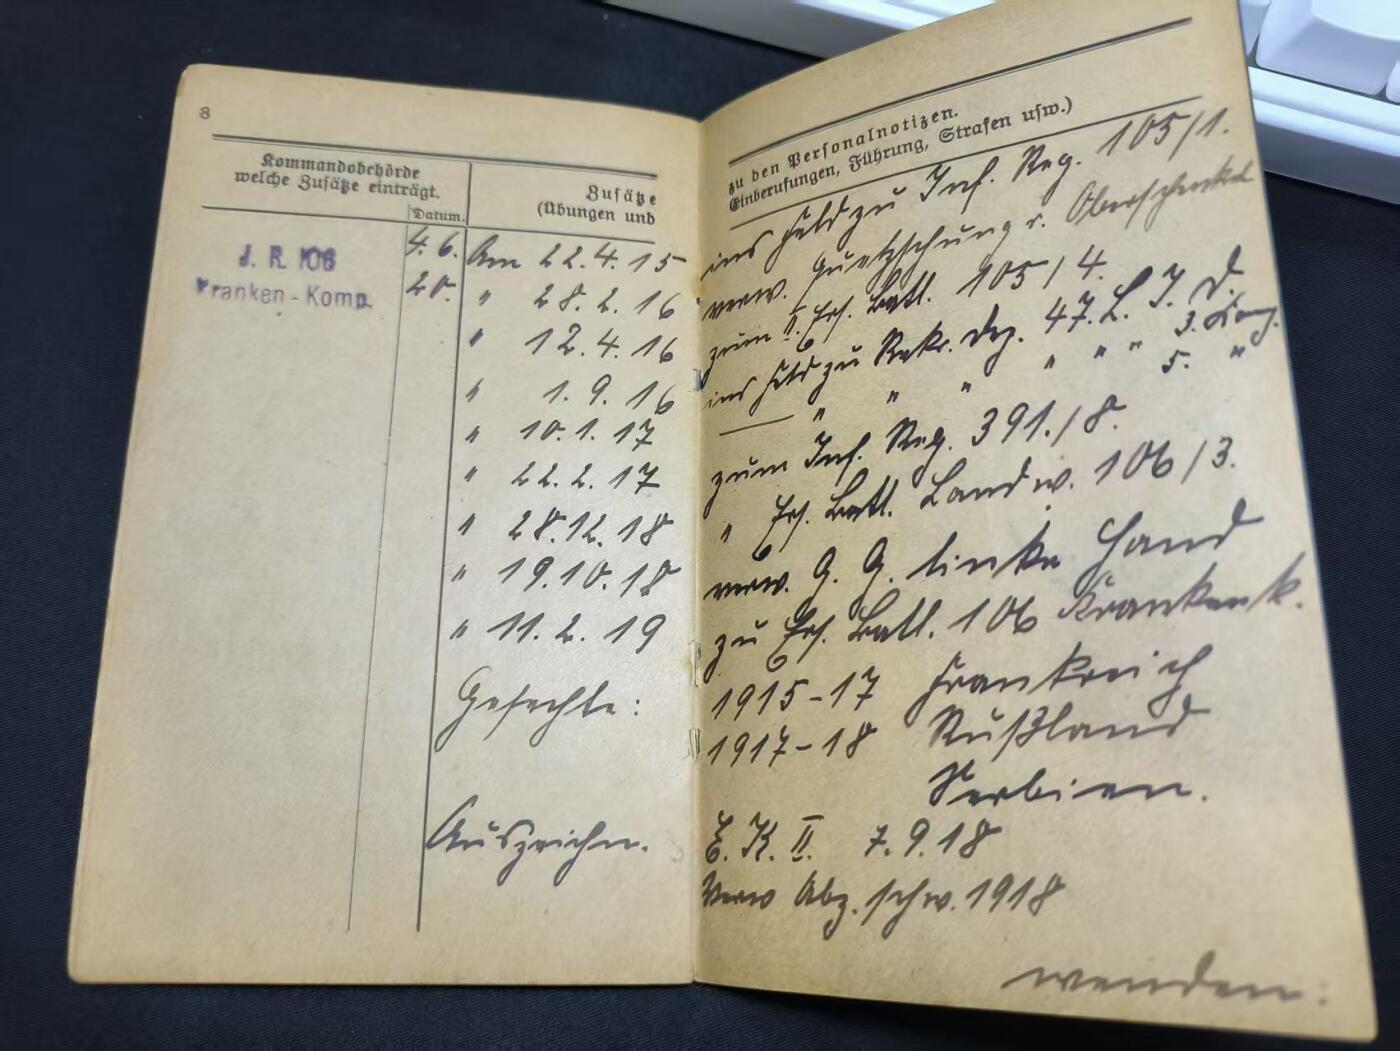 8
Kommandobehörde
welche Zusätze einträgt.
Datum.
Zusätze
(Übungen und
zu den Personalnotizen.
Einberufungen, Führung, Strafen usw.)
J. R. 106
Kranken-Komp.
4. 6.
20.
Am 22.4.15 ins Feld zu Inf. Reg. 105/1.
" 28.2.16 verw. Quetschung r. Oberschenkel
" 12.4.16 zum II. Ers. Batl. 105/4.
" 1.9.16 ins Feld zu Rekr. Dep. 47. L. J. D. 3. Komp.
" 10.1.17 " " " " " " 5. "
" 22.2.17 zum Inf. Reg. 391./8.
" 28.12.18 " Ers. Batl. Landw. 106/3.
" 19.10.18 verw. G. G. linke Hand
" 11.2.19 zu Ers. Batl. 106 Krankenk.
Gefechte: 1915-17 Frankreich
1917-18 Rußland
Serbien.
Auszeichn. E. K. II. 7.9.18
Verw Abz. schw. 1918
wenden: